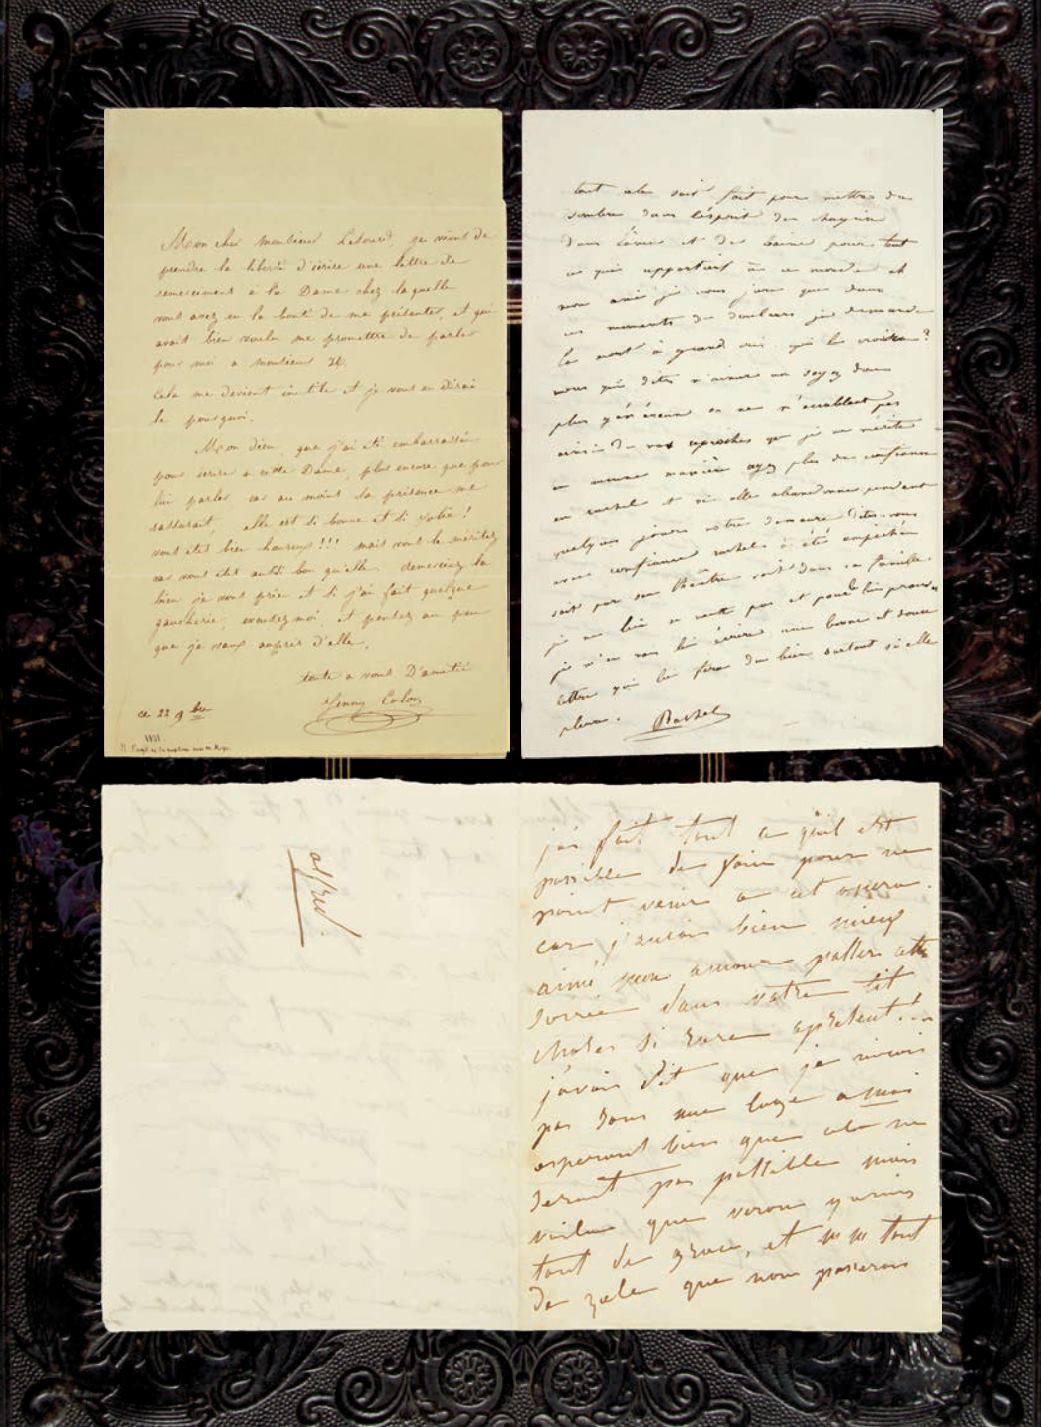 Mon cher monsieur Letourd, je viens de
prendre la liberté d'écrire une lettre de
remerciment à la Dame chez laquelle
vous avez eu la bonté de me présenter, et qui
avait bien voulu me promettre de parler
pour moi a monsieur
Cela me devient inutile et je vous en Dirai
le pourquoi.
Mon dieu, que j'ai été embarrassée
pour écrire a cette Dame, plus encore que pour
lui parler car au moins sa présence me
rassurait, elle est si bonne et si jolie!
vous etes bien heureux!!! mais vous le méritez
car vous etes aussi bon qu'elle. remerciez la
bien je vous prie et si j'ai fait quelque
gaucherie, excusez moi, et gardez un peu
que je vaux auprès d'elle.
toute a vous D'amitié
Jenny Colon
ce 22 9bre
1831
tout cela soit fait pour mettre du
sombre dans l'ésprit du chagrin
dans l'âme et de la haine pour tout
ce qui appartient à ce monde et
mon ami je vous jure que dans
ces moments de douleurs je demande
la mort à grand cris. qui le croirait?
vous qui dites m'aimer ah soyez donc
plus généreux et ne m'accablez pas
ainsi de vos reproches que je ne mérite
en aucune manière ayez plus de confiance
en rachel et si elle abandonne pendant
quelques jours votre demeure dites-vous
avec confiance rachel a été empêchée
soit par son théâtre soit dans sa famille
je ne lui en veux pas et pour lui prouver
je m'en vais lui écrire une bonne et douce
lettre qui lui fera du bien surtout si elle
pleure. Rachel
alfred.
j'ai fait tout ce qu'il est
possible de faire pour ne
point venir a cet opera.
car j'aurais bien mieux
aimé mon amour passer cette
soirée dans votre lit
chose si rare apresent...
j'avais dit que je n'irais
pas dans une loge a moi
esperant bien que cela ne
serait pas possible mais
voila que veron y a mis
tant de grace, et m m tant
de zele que nous passerons